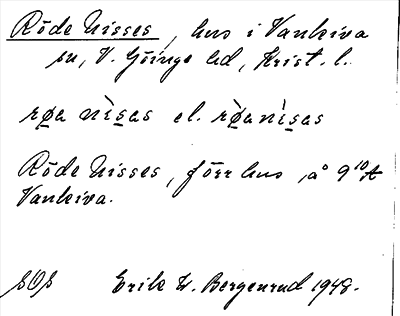 Röde Nisses, hus i Vankiva
sn, V. Göinge hd, Krist. l.
rø̀a nìsas el. rø̀anìsas
Röde Nisses, förr hus, å 9¹⁰ A
Vankiva.
SOS Erik W. Bergenrud 1948.